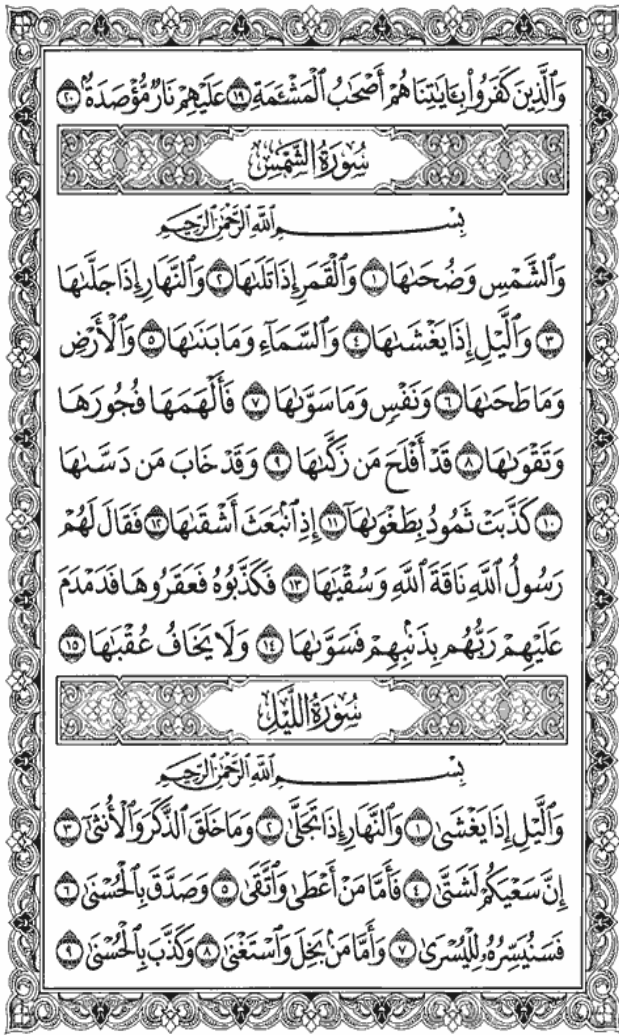 وَٱلَّذِينَ كَفَرُواْ بِـَٔايَٰتِنَا هُمْ أَصْحَٰبُ ٱلْمَشْـَٔمَةِ ١٩ عَلَيْهِمْ نَارٌ مُّؤْصَدَةٌۢ ٢٠
سُورَةُ الشَّمْسِ
بِسْمِ ٱللَّهِ ٱلرَّحْمَٰنِ ٱلرَّحِيمِ
وَٱلشَّمْسِ وَضُحَىٰهَا ١ وَٱلْقَمَرِ إِذَا تَلَىٰهَا ٢ وَٱلنَّهَارِ إِذَا جَلَّىٰهَا
٣ وَٱلَّيْلِ إِذَا يَغْشَىٰهَا ٤ وَٱلسَّمَآءِ وَمَا بَنَىٰهَا ٥ وَٱلْأَرْضِ
وَمَا طَحَىٰهَا ٦ وَنَفْسٍ وَمَا سَوَّىٰهَا ٧ فَأَلْهَمَهَا فُجُورَهَا
وَتَقْوَىٰهَا ٨ قَدْ أَفْلَحَ مَن زَكَّىٰهَا ٩ وَقَدْ خَابَ مَن دَسَّىٰهَا
١٠ كَذَّبَتْ ثَمُودُ بِطَغْوَىٰهَآ ١١ إِذِ ٱنۢبَعَثَ أَشْقَىٰهَا ١٢ فَقَالَ لَهُمْ
رَسُولُ ٱللَّهِ نَاقَةَ ٱللَّهِ وَسُقْيَٰهَا ١٣ فَكَذَّبُوهُ فَعَقَرُوهَا فَدَمْدَمَ
عَلَيْهِمْ رَبُّهُم بِذَنۢبِهِمْ فَسَوَّىٰهَا ١٤ وَلَا يَخَافُ عُقْبَٰهَا ١٥
سُورَةُ اللَّيْلِ
بِسْمِ ٱللَّهِ ٱلرَّحْمَٰنِ ٱلرَّحِيمِ
وَٱلَّيْلِ إِذَا يَغْشَىٰ ١ وَٱلنَّهَارِ إِذَا تَجَلَّىٰ ٢ وَمَا خَلَقَ ٱلذَّكَرَ وَٱلْأُنثَىٰٓ ٣
إِنَّ سَعْيَكُمْ لَشَتَّىٰ ٤ فَأَمَّا مَنْ أَعْطَىٰ وَٱتَّقَىٰ ٥ وَصَدَّقَ بِٱلْحُسْنَىٰ ٦
فَسَنُيَسِّرُهُۥ لِلْيُسْرَىٰ ٧ وَأَمَّا مَنۢ بَخِلَ وَٱسْتَغْنَىٰ ٨ وَكَذَّبَ بِٱلْحُسْنَىٰ ٩